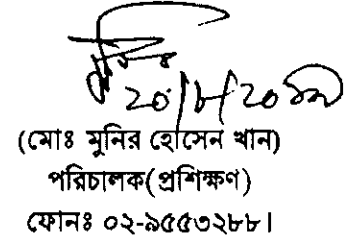 ২০/৮/২০১৯
(মোঃ মুনির হোসেন খান)
পরিচালক(প্রশিক্ষণ)
ফোনঃ ০২-৯৫৫৩২৮৮।